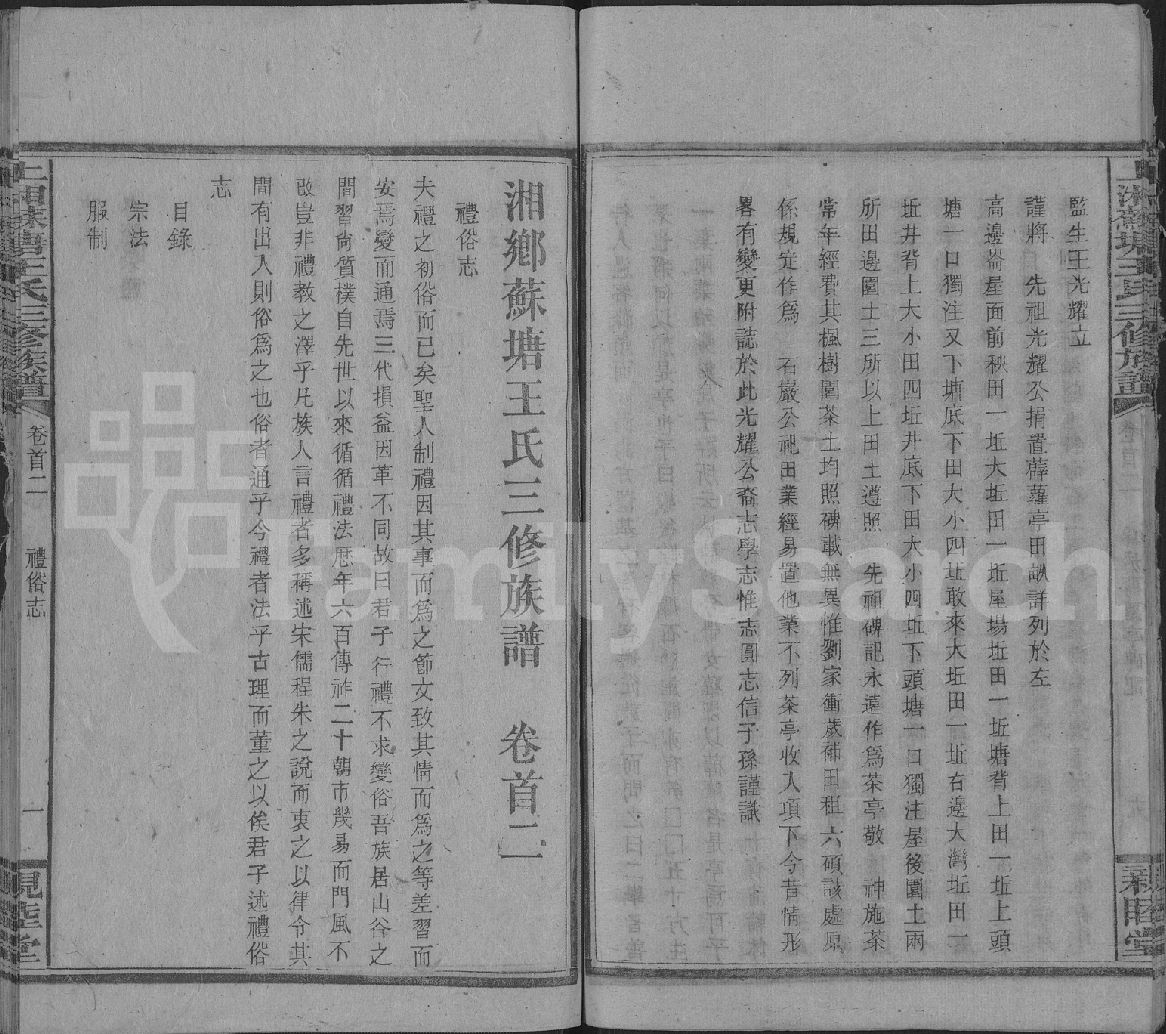 監生王光耀立
謹將　先祖光耀公捐置薜蘿亭田畝詳列於左
高邊崙屋面前秧田一坵大坵田一坵屋場坵田一坵塘背上田一坵上頭
塘一口獨注又下塘底下田大小四坵敢來大坵田一坵右邊大灣坵田一
坵井背上大小田四坵井底下田大小四坵下頭塘一口獨注屋後園土兩
所田邊園土三所以上田土遵照　先祖碑記永遠作爲茶亭敬　神施茶
常年經費其楓樹園茶土均照碑載無異惟劉家衝歲補田租六碩該處原
係規定作爲　石巖公祀田業經易置他業不列茶亭收入項下今昔情形
畧有變更附誌於此光耀公裔志學志惟志圓志信子孫謹識
湘鄉蘇塘王氏三修族譜　卷首二
禮俗志
夫禮之初俗而已矣聖人制禮因其事而爲之節文致其情而爲之等差習而
安焉變而通焉三代損益因革不同故曰君子行禮不求變俗吾族居山谷之
間習尚質樸自先世以來循循禮法歷年六百傳祚二十朝市幾易而門風不
改豈非禮教之澤乎凡族人言禮者多稱述宋儒程朱之說而衷之以律令其
間有出入則俗爲之也俗者通乎今禮者法乎古理而董之以俟君子述禮俗
志
目錄
宗法
服制
上湘蘇塘王氏三修族譜
卷首二　禮俗志
一